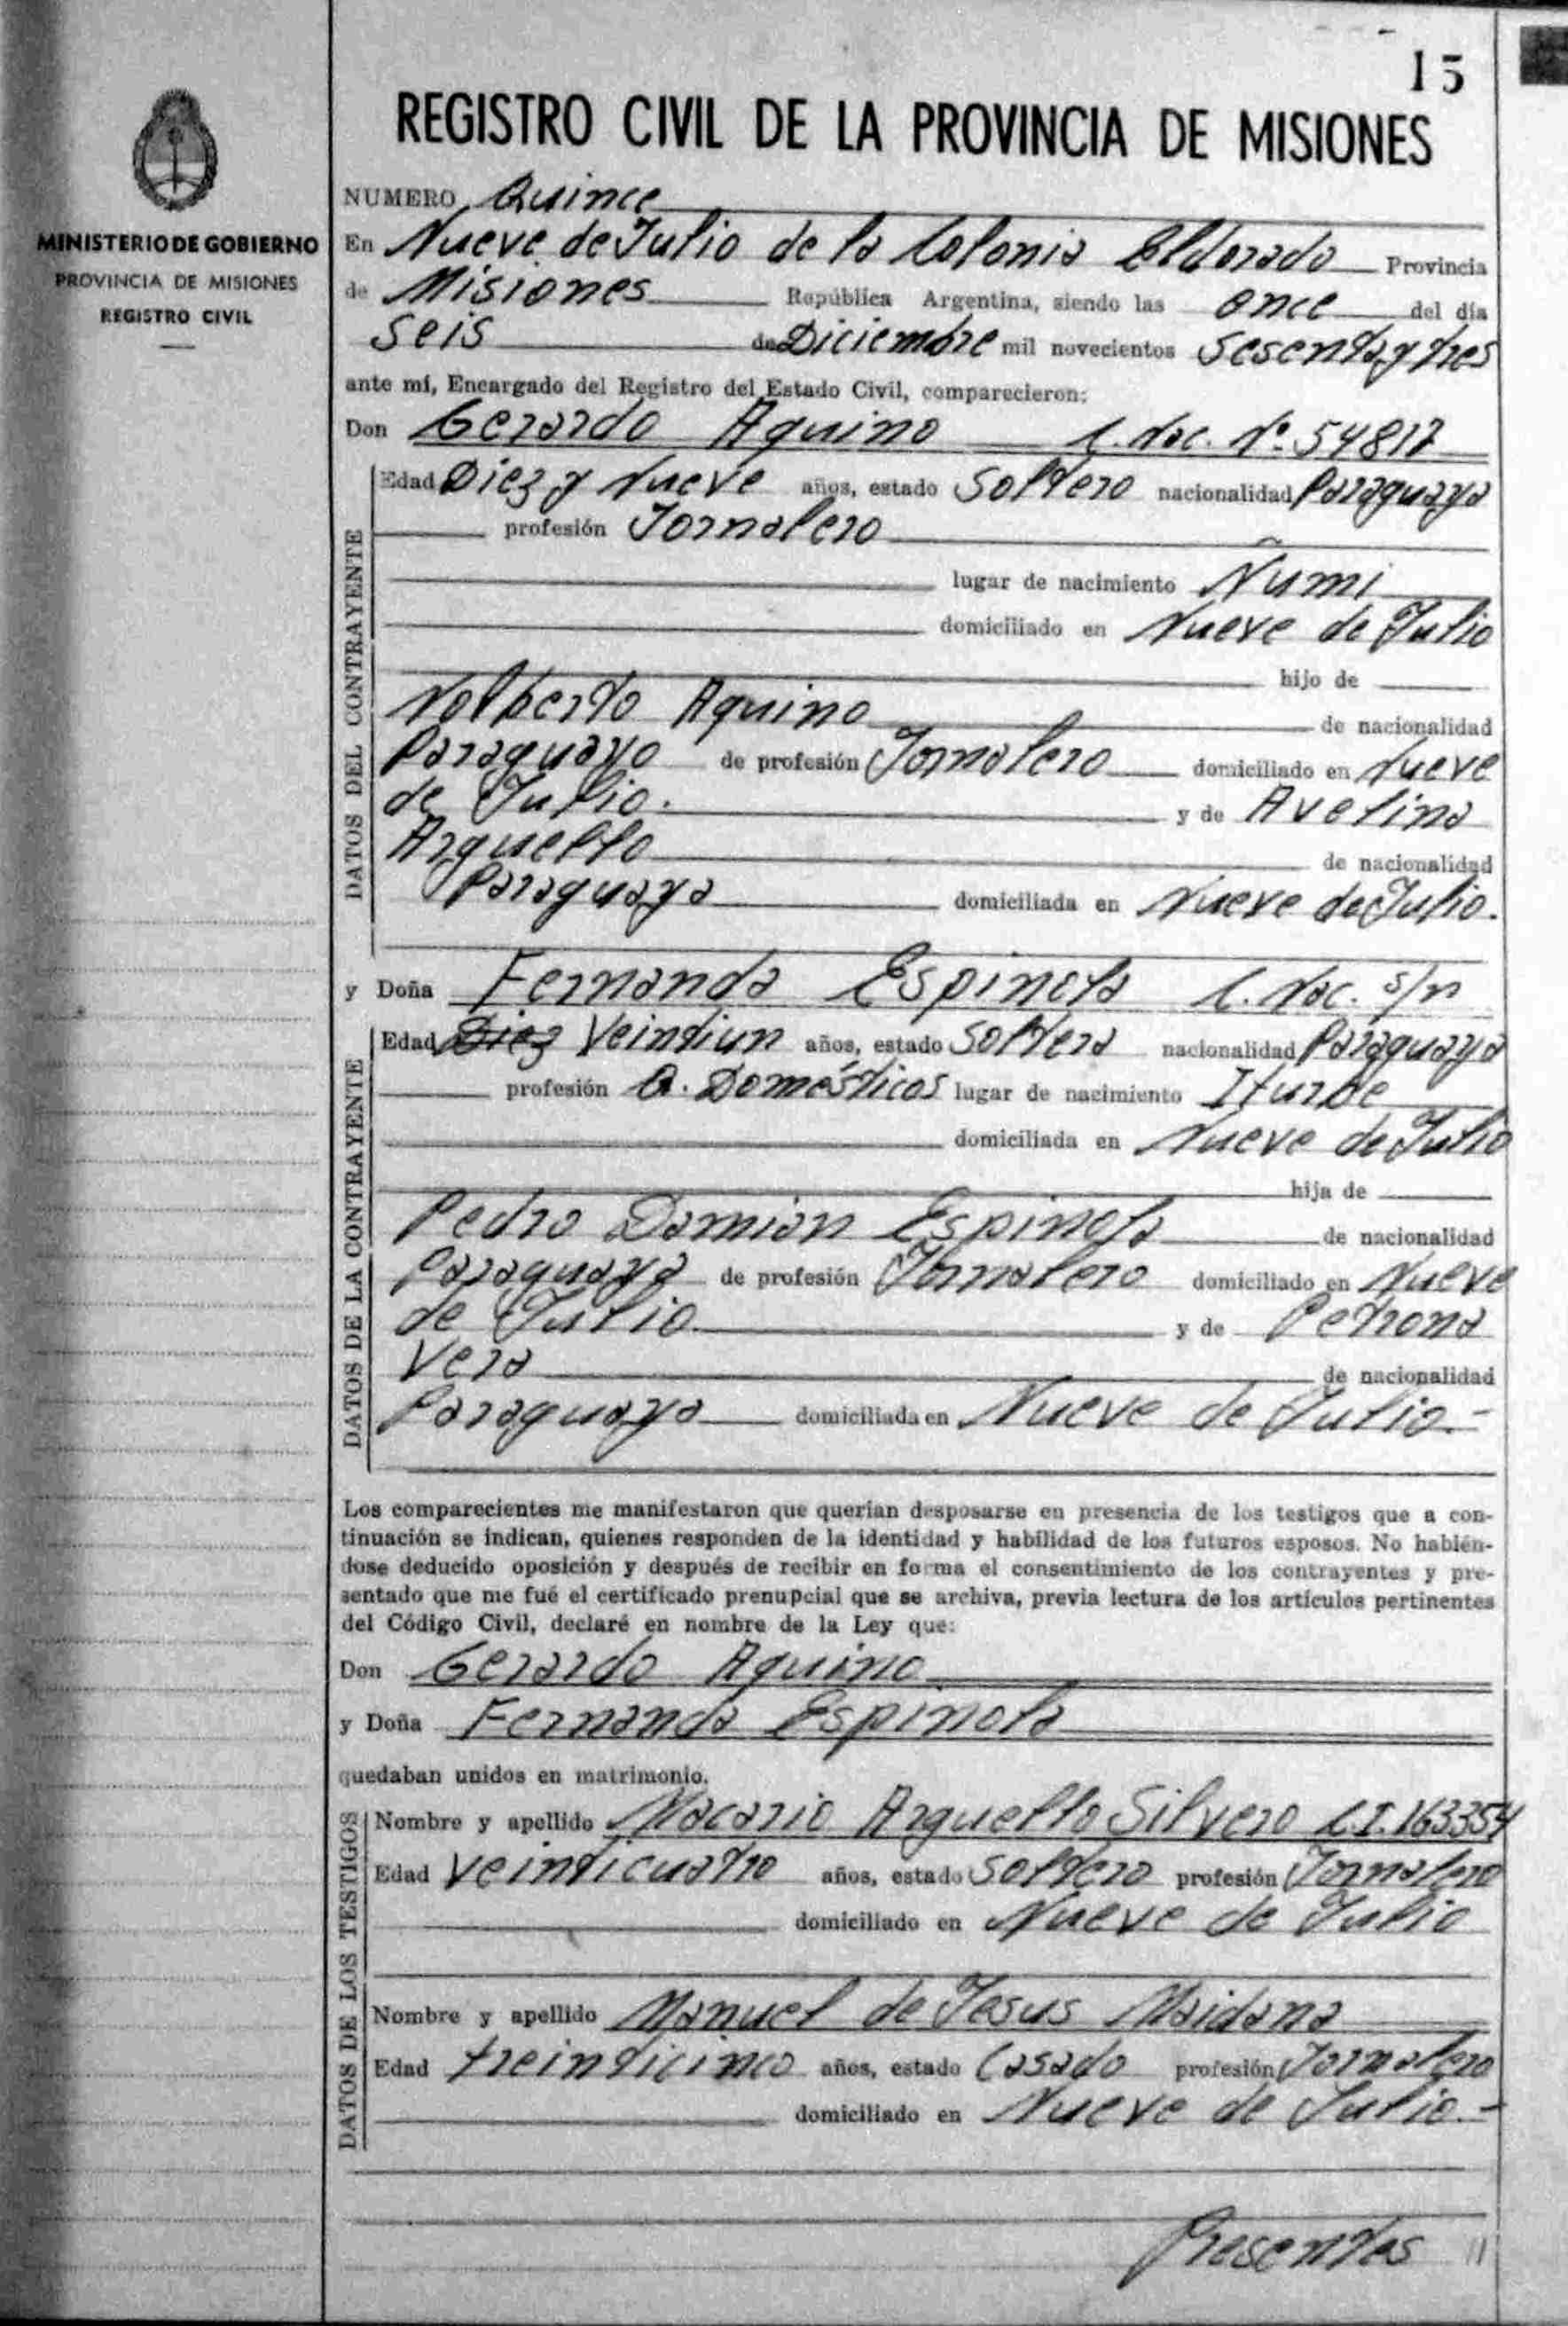 15
REGISTRO CIVIL DE LA PROVINCIA DE MISIONES
MINISTERIO DE GOBIERNO
PROVINCIA DE MISIONES
REGISTRO CIVIL
NUMERO Quince
En Nueve de Julio de la Colonia Eldorado Provincia
de Misiones República Argentina, siendo las once del día
seis de Diciembre mil novecientos sesenta y tres
ante mí, Encargado del Registro del Estado Civil, comparecieron:
Don Gerardo Aquino C. Nac. Nº 54817
DATOS DEL CONTRAYENTE
Edad Diez y Nueve años, estado Soltero nacionalidad Paraguaya
profesión Jornalero
lugar de nacimiento Ñumi
domiciliado en Nueve de Julio
hijo de
Nolberto Aquino de nacionalidad
Paraguayo de profesión Jornalero domiciliado en Nueve
de Julio. y de Avelina
Arguello de nacionalidad
Paraguaya domiciliada en Nueve de Julio.
y Doña Fernanda Espinola C. Nac. s/n
DATOS DE LA CONTRAYENTE
Edad Diez Veintiun años, estado Soltera nacionalidad Paraguaya
profesión Q. Domésticos lugar de nacimiento Iturbe
domiciliada en Nueve de Julio
hija de
Pedro Damian Espinola de nacionalidad
Paraguaya de profesión Jornalero domiciliado en Nueve
de Julio y de Petrona
Vera de nacionalidad
Paraguaya domiciliada en Nueve de Julio.-
Los comparecientes me manifestaron que querían desposarse en presencia de los testigos que a con-
tinuación se indican, quienes responden de la identidad y habilidad de los futuros esposos. No habién-
dose deducido oposición y después de recibir en forma el consentimiento de los contrayentes y pre-
sentado que me fué el certificado prenupcial que se archiva, previa lectura de los artículos pertinentes
del Código Civil, declaré en nombre de la Ley que:
Don Gerardo Aquino
y Doña Fernanda Espinola
quedaban unidos en matrimonio.
DATOS DE LOS TESTIGOS
Nombre y apellido Macario Arguello Silvero C.I. 163354
Edad veinticuatro años, estado Soltero profesión Jornalero
domiciliado en Nueve de Julio
Nombre y apellido Manuel de Jesus Maidana
Edad treinticinco años, estado Casado profesión Jornalero
domiciliado en Nueve de Julio.-
Presentes //